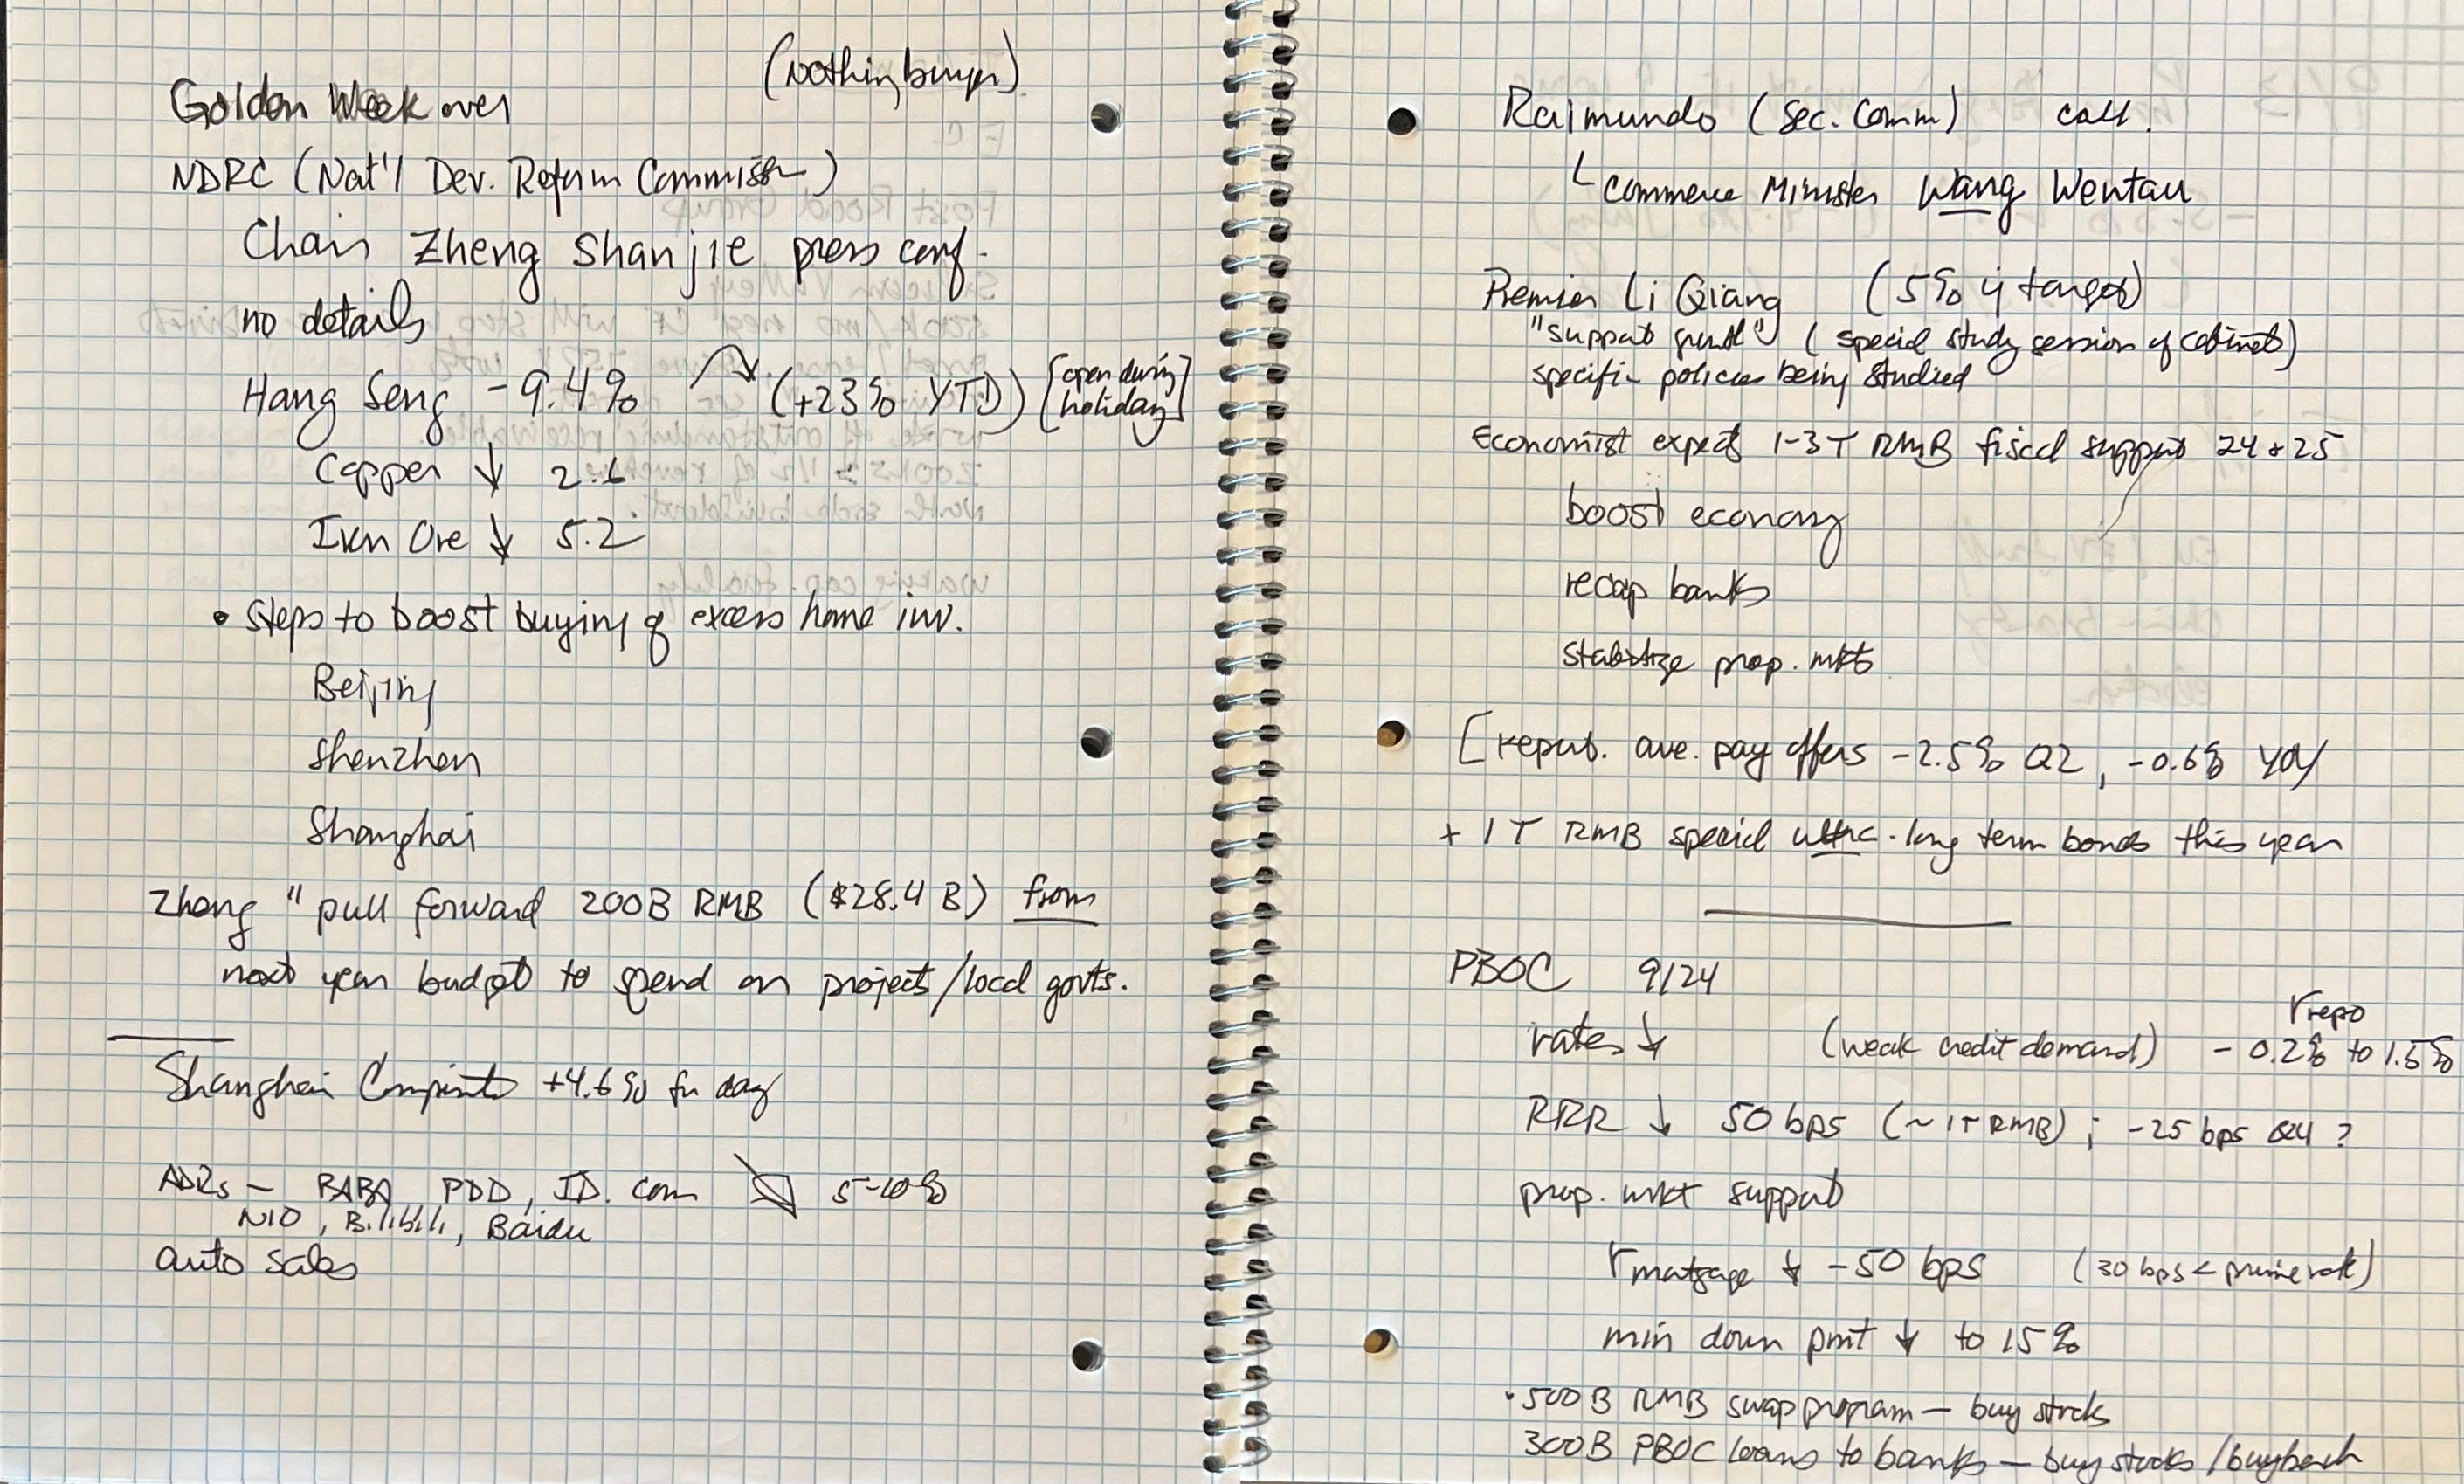 (Nothingburger)
Golden Week over
NDRC (Nat'l Dev. Reform Commission)
Chair Zheng Shanjie press conf.
no details
Hang Seng -9.4% (+23% YTD) [open during holiday]
Copper ↓ 2.1
Iron Ore ↓ 5.2
• Steps to boost buying of excess home inv.
Beijing
Shenzhen
Shanghai
Zheng "pull forward 200B RMB ($28.4 B) from
next year budget to spend on projects/local govts.
Shanghai Composite +4.6% for day
ADRs – BABA, PDD, JD.com ↘ 5-10%
NIO, Bilibili, Baidu
auto sales
Raimundo (Sec. Comm) call.
└ Commerce Minister Wang Wentau
Premier Li Qiang (5% y target)
"support growth" (special study session of cabinet)
specific policies being studied
Economist expect 1-3T RMB fiscal support 24+25
boost economy
recap banks
stabilize prop. mkt
[ ave. pay offers -2.5% Q2, -0.6% YOY
+ 1T RMB special ultra-long term bonds this year
PBOC 9/24
r repo
rates ↓ (weak credit demand) - 0.2% to 1.5%
RRR ↓ 50 bps (~1T RMB); -25 bps Q4?
prop. mkt support
r mortgage ↓ -50 bps (30 bps < prime rate)
min down pmt ↓ to 15%
• 500B RMB swap program – buy stocks
300B PBOC loans to banks – buy stocks/buyback